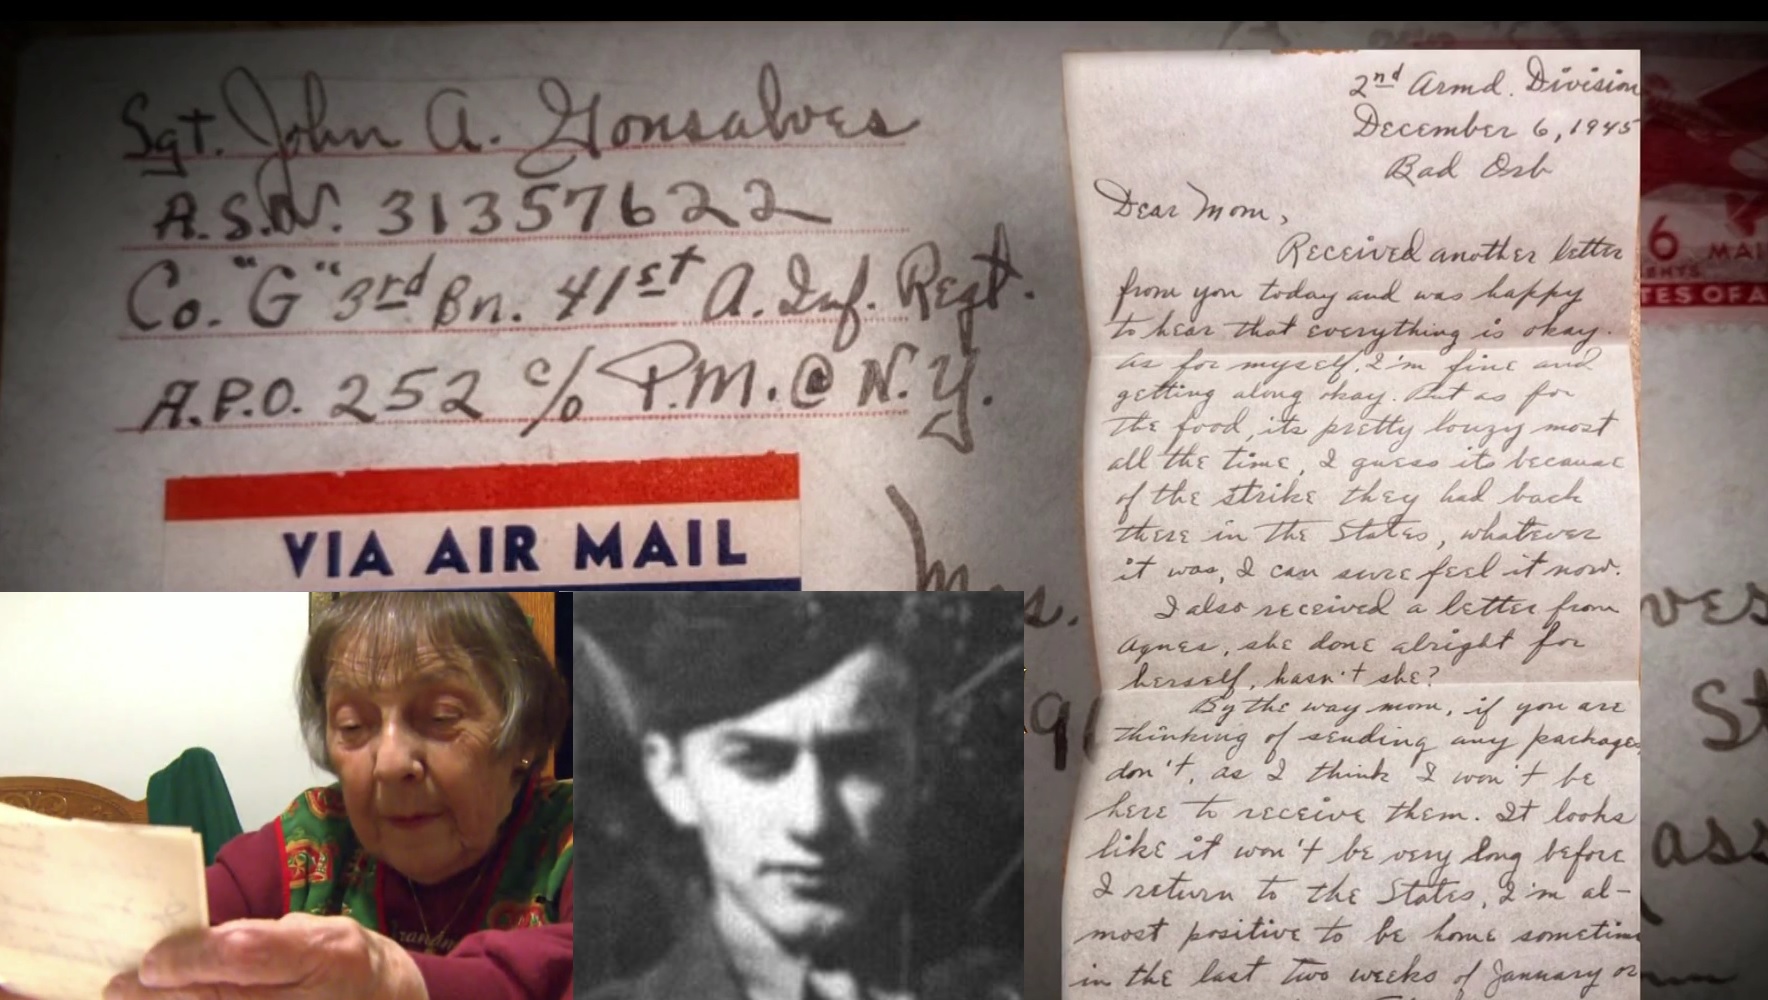 Sgt. John A. Gonsalves
A.S.N. 31357622
Co. "G" 3rd Bn. 41st A. Inf. Regt.
A.P.O. 252 c/o P.M. @ N.Y.
VIA AIR MAIL
Mrs.
2nd Armd. Division
December 6, 1945
Bad Orb
Dear Mom,
Received another letter
from you today and was happy
to hear that everything is okay.
As for myself, I'm fine and
getting along okay. But as for
the food, its pretty louzy most
all the time, I guess its because
of the strike they had back
there in the States, whatever
it was, I can sure feel it now.
I also received a letter from
Agnes, she done alright for
herself, hasn't she?
By the way mom, if you are
thinking of sending any packages
don't, as I think I won't be
here to receive them. It looks
like it won't be very long before
I return to the States, I'm al-
most positive to be home sometime
in the last two weeks of January or
6
CENTS
MAI
TES OF A
ves
St
ass